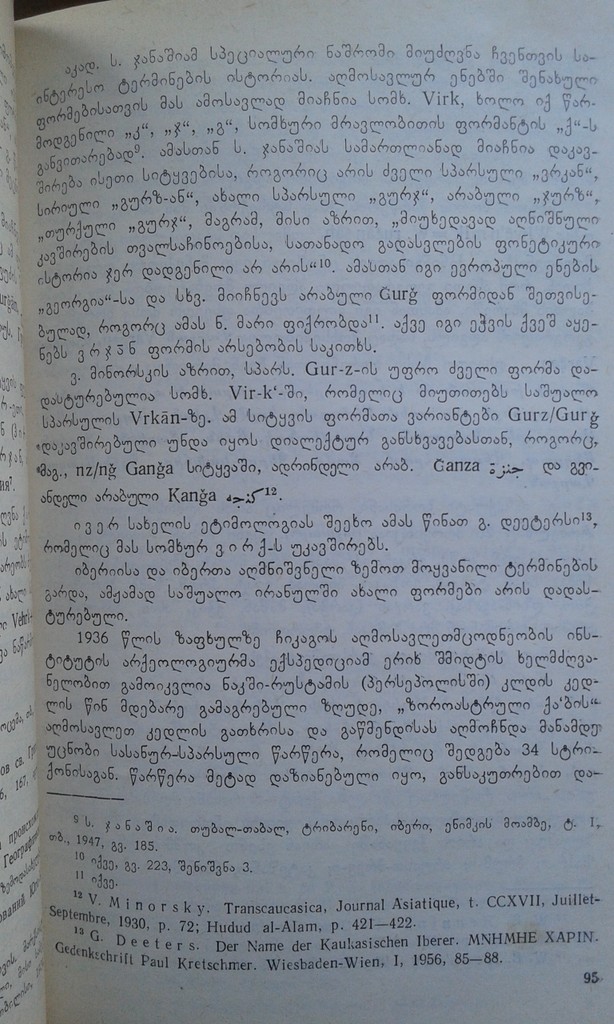 აკად. ს. ჯანაშიამ სპეციალური ნაშრომი მიუძღვნა ჩვენთვის სა-
ინტერესო ტერმინების ისტორიას. აღმოსავლურ ენებში შენახული
ფორმებისათვის მას ამოსავლად მიაჩნია სომხ. Virk, ხოლო იქ წარ-
მოდგენილი „კ“, „ჯ“, „გ“, სომხური მრავლობითის ფორმანტის „ქ“-ს
განვითარებად⁹. ამასთან ს. ჯანაშიას სამართლიანად მიაჩნია დაკავ-
შირება ისეთი სიტყვებისა, როგორიც არის ძველი სპარსული „ვრკან“,
სირიული „გურზ-ან“, ახალი სპარსული „გურჯ“, არაბული „ჯურზ“,
„თურქული „გურჯ“, მაგრამ, მისი აზრით, „მიუხედავად აღნიშნული
კავშირების თვალსაჩინოებისა, სათანადო გადასვლების ფონეტიკური
ისტორია ჯერ დადგენილი არ არის“¹⁰. ამასთან იგი ევროპული ენების
„გეორგია“-სა და სხვ. მიიჩნევს არაბული Ğurğ ფორმიდან შეთვისე-
ბულად, როგორც ამას ნ. მარი ფიქრობდა¹¹. აქვე იგი ეჭვის ქვეშ აყე-
ნებს ფორმის არსებობის საკითხს.
ვ. მინორსკის აზრით, სპარს. Gur-z-ის უფრო ძველი ფორმა და-
დასტურებულია სომხ. Vir-k‘-ში, რომელიც მიუთითებს საშუალო
სპარსულის Vrkān-ზე. ამ სიტყვის ფორმათა ვარიანტები Gurz/Gurğ
დაკავშირებული უნდა იყოს დიალექტურ განსხვავებასთან, როგორც,
მაგ., nz/nğ Ganğa სიტყვაში, ადრინდელი არაბ. Ğanza جنزة და გვი-
ანდელი არაბული Kanğa كنجه¹².
ივერ სახელის ეტიმოლოგიას შეეხო ამას წინათ გ. დეეტერსი¹³,
რომელიც მას სომხურ ვირქ-ს უკავშირებს.
იბერიისა და იბერთა აღმნიშვნელი ზემოთ მოყვანილი ტერმინების
გარდა, ამჟამად საშუალო ირანულში ახალი ფორმები არის დადას-
ტურებული.
1936 წლის ზაფხულზე ჩიკაგოს აღმოსავლეთმცოდნეობის ინს-
ტიტუტის არქეოლოგიურმა ექსპედიციამ ერიხ შმიდტის ხელმძღვა-
ნელობით გამოიკვლია ნაკში-რუსტამის (პერსეპოლისში) კლდის კედ-
ლის წინ მდებარე გამაგრებული ზღუდე, „ზოროასტრული ქა‘ბის“
აღმოსავლეთ კედლის გათხრისა და გაწმენდისას აღმოჩნდა მანამდე
უცნობი სასანურ-სპარსული წარწერა, რომელიც შედგება 34 სტრი-
ქონისაგან. წარწერა მეტად დაზიანებული იყო, განსაკუთრებით და-
⁹ ს. ჯანაშია. თუბალ-თაბალ, ტიბარენი, იბერი, ენიმკის მოამბე, ტ. I,
თბ., 1947, გვ. 185.
¹⁰ იქვე, გვ. 223, შენიშვნა 3.
¹¹ იქვე.
¹² V. Minorsky. Transcaucasica, Journal Asiatique, t. CCXVII, Juillet-
Septembre, 1930, p. 72; Hudud al-Alam, p. 421—422.
¹³ G. Deeters. Der Name der Kaukasischen Iberer. ΜΝΗΜΗΣ ΧΑΡΙΝ.
Gedenkschrift Paul Kretschmer. Wiesbaden-Wien, I, 1956, 85—88.
95